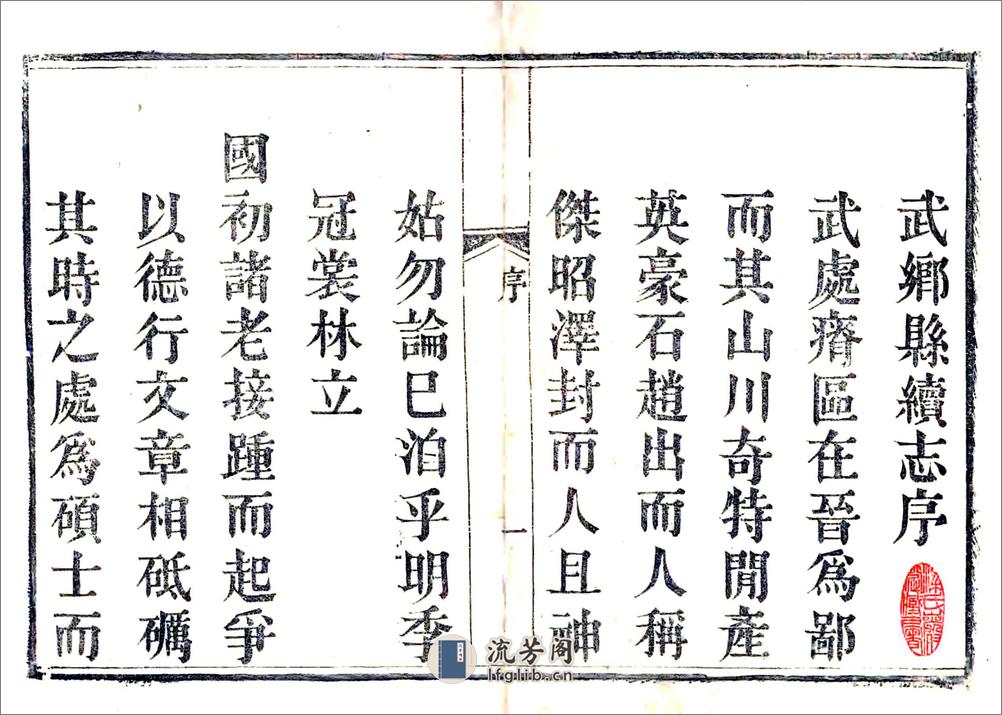 武鄉縣續志序
武處瘠區在晉爲鄙
而其山川奇特閒產
英豪石趙出而人稱
傑昭澤封而人且神
序
一
姑勿論已洎乎明季
冠裳林立
國初諸老接踵而起爭
以德行文章相砥礪
其時之處爲碩士而
流芳阁
lfglib.cn